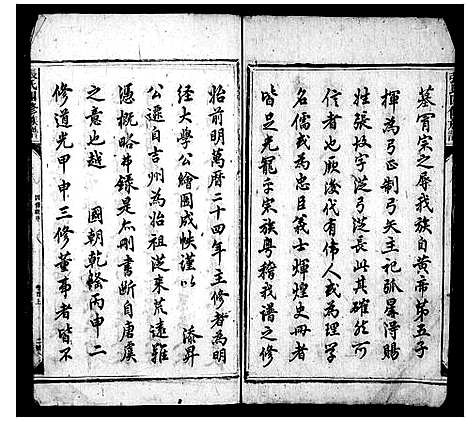 基胄宗之辱我族自黄帝第五子
揮為弓正制弓矢主祀弧星得賜
姓張故字從弓從長此其確然可
信者也厥後代有偉人或為理學
名儒或為忠臣義士輝煌史冊者
皆足光寵乎宗族粤稽我譜之修
始前明萬曆二十四年主修者為明
經大學公繪圖成帙謹以 添昇
公遷自吉州為始祖從來荒遠難
憑概略弗錄是亦刪書斷自唐虞
之意也越 國朝乾隆丙申二
修道光甲申三修董事者皆不
張氏四修族譜
四修敘
卷首上
二